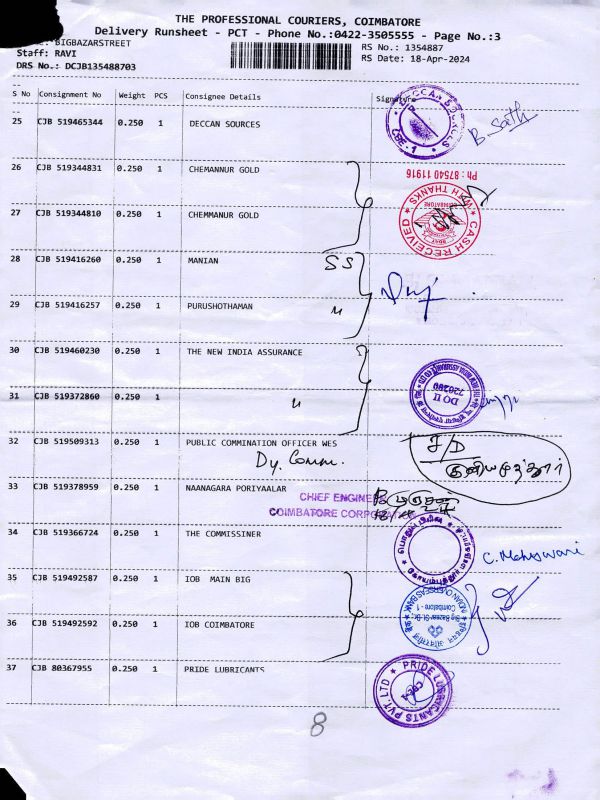 THE PROFESSIONAL COURIERS, COIMBATORE
Delivery Runsheet - PCT - Phone No.:0422-3505555 - Page No.:3
BIGBAZARSTREET
RS No.: 1354887
Staff: RAVI
RS Date: 18-Apr-2024
DRS No.: DCJB135488703
S No Consignment No Weight PCS Consignee Details Signature
25 CJB 519465344 0.250 1 DECCAN SOURCES
DECCAN SOURCES
CBE-1
Ph : 87540 11916
26 CJB 519344831 0.250 1 CHEMANNUR GOLD
CASH RECEIVED WITH THANKS
COIMBATORE
27 CJB 519344810 0.250 1 CHEMMANUR GOLD
28 CJB 519416260 0.250 1 MANIAN
SS
29 CJB 519416257 0.250 1 PURUSHOTHAMAN
30 CJB 519460230 0.250 1 THE NEW INDIA ASSURANCE
DO II
720200
31 CJB 519372860 0.250 1
32 CJB 519509313 0.250 1 PUBLIC COMMINATION OFFICER WES
Dy. Comm.
33 CJB 519378959 0.250 1 NAANAGARA PORIYAALAR
CHIEF ENGINEER
COIMBATORE CORPORA
34 CJB 519366724 0.250 1 THE COMMISSINER
C. Maheswari
35 CJB 519492587 0.250 1 IOB MAIN BIG
INDIAN OVERSEAS BANK
Big Bazaar St. Br.
Coimbatore - 1
36 CJB 519492592 0.250 1 IOB COIMBATORE
37 CJB 80367955 0.250 1 PRIDE LUBRICANTS
PRIDE LUBRICANTS PVT LTD
8